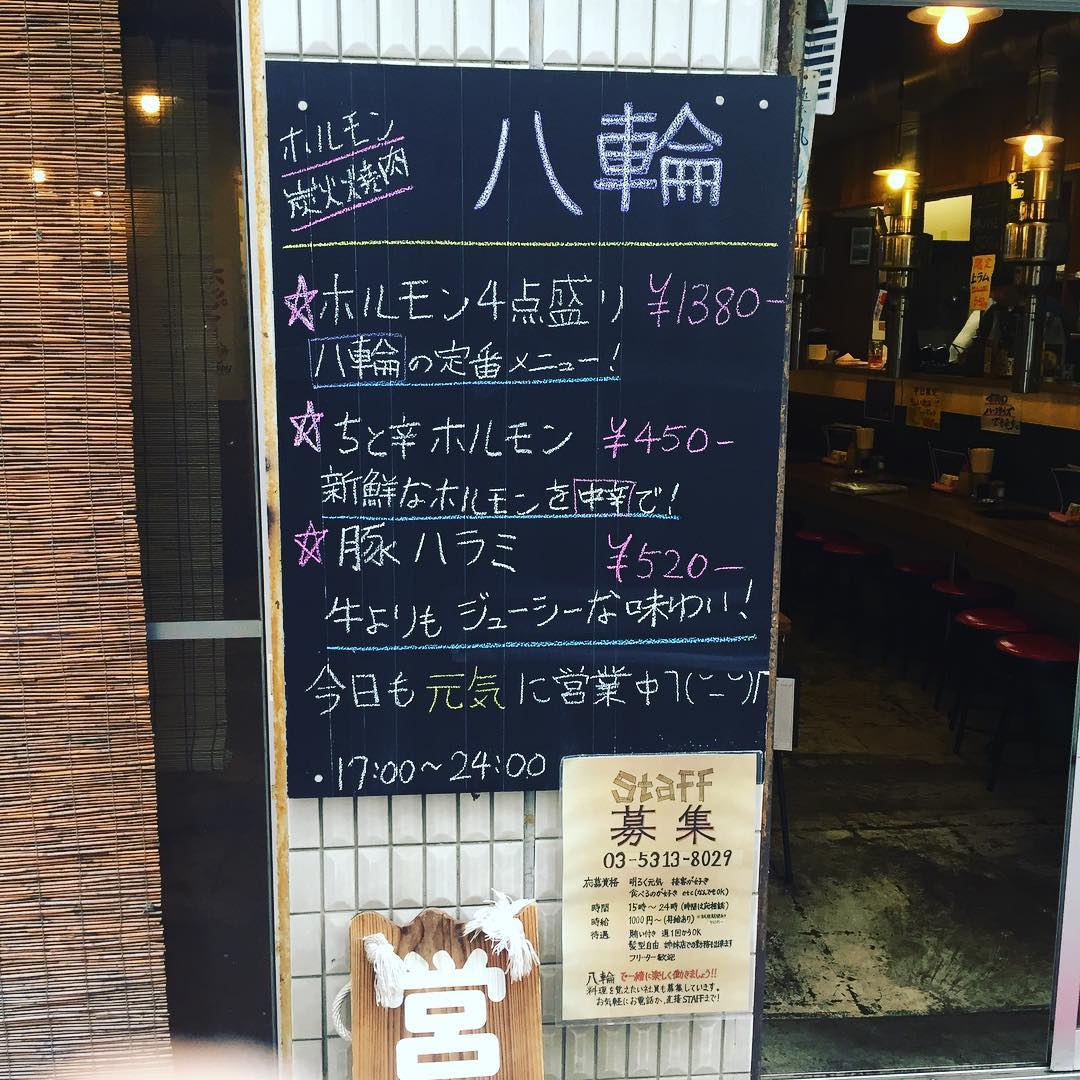 ホルモン
炭火焼肉
八輪
☆ホルモン4点盛り ¥1380-
八輪の定番メニュー!
☆ちと辛ホルモン ¥450-
新鮮なホルモンを中辛で!
☆豚ハラミ ¥520-
牛よりもジューシーな味わい!
今日も元気に営業中┐(˘ー˘)┌
17:00～24:00
Staff
募集
03-5313-8029
応募資格 明るく元気 接客が好き
食べるのが好き etc(なんでもOK)
時間 15時～24時(時間は応相談)
時給 1000円～(昇給あり)
待遇 賄い付き 週1回からOK
髪型自由 姉妹店での勤務も出来ます
フリーター歓迎
八輪で一緒に楽しく働きましょう!!
料理を覚えたい社員も募集しています。
お気軽にお電話か、直接STAFFまで!
営
限定
上ラム